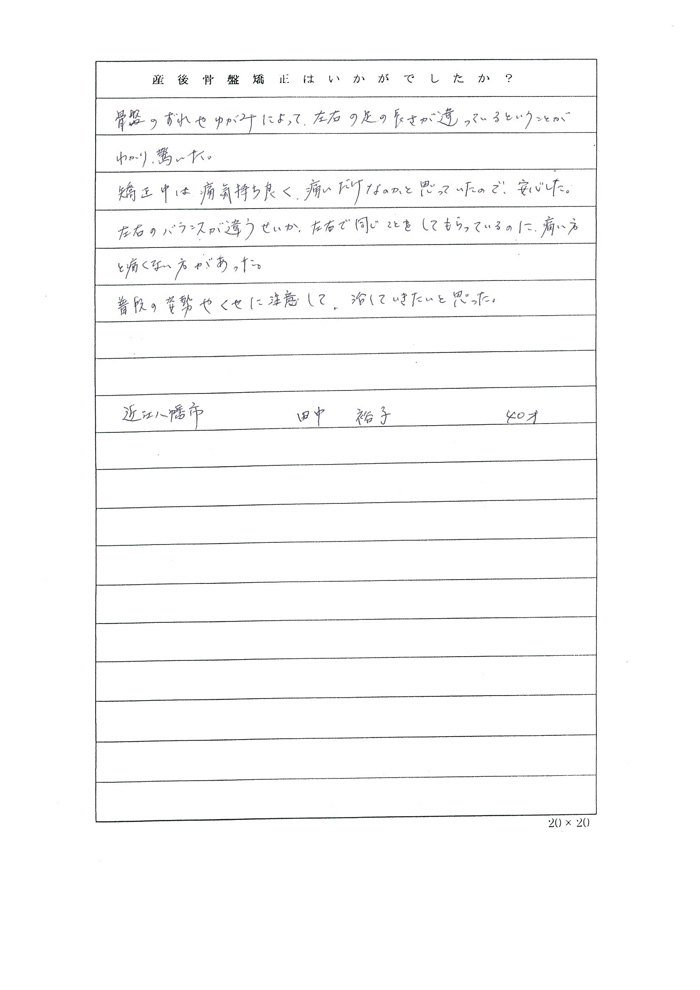 産後骨盤矯正はいかがでしたか？
骨盤のずれやゆがみによって、左右の足の長さが違っているということが
わかり、驚いた。
矯正中は痛気持ち良く、痛いだけなのかと思っていたので、安心した。
左右のバランスが違うせいか、左右で同じことをしてもらっているのに、痛い方
と痛くない方があった。
普段の姿勢やくせに注意して、治していきたいと思った。
近江八幡市 田中 裕子 40才
20×20